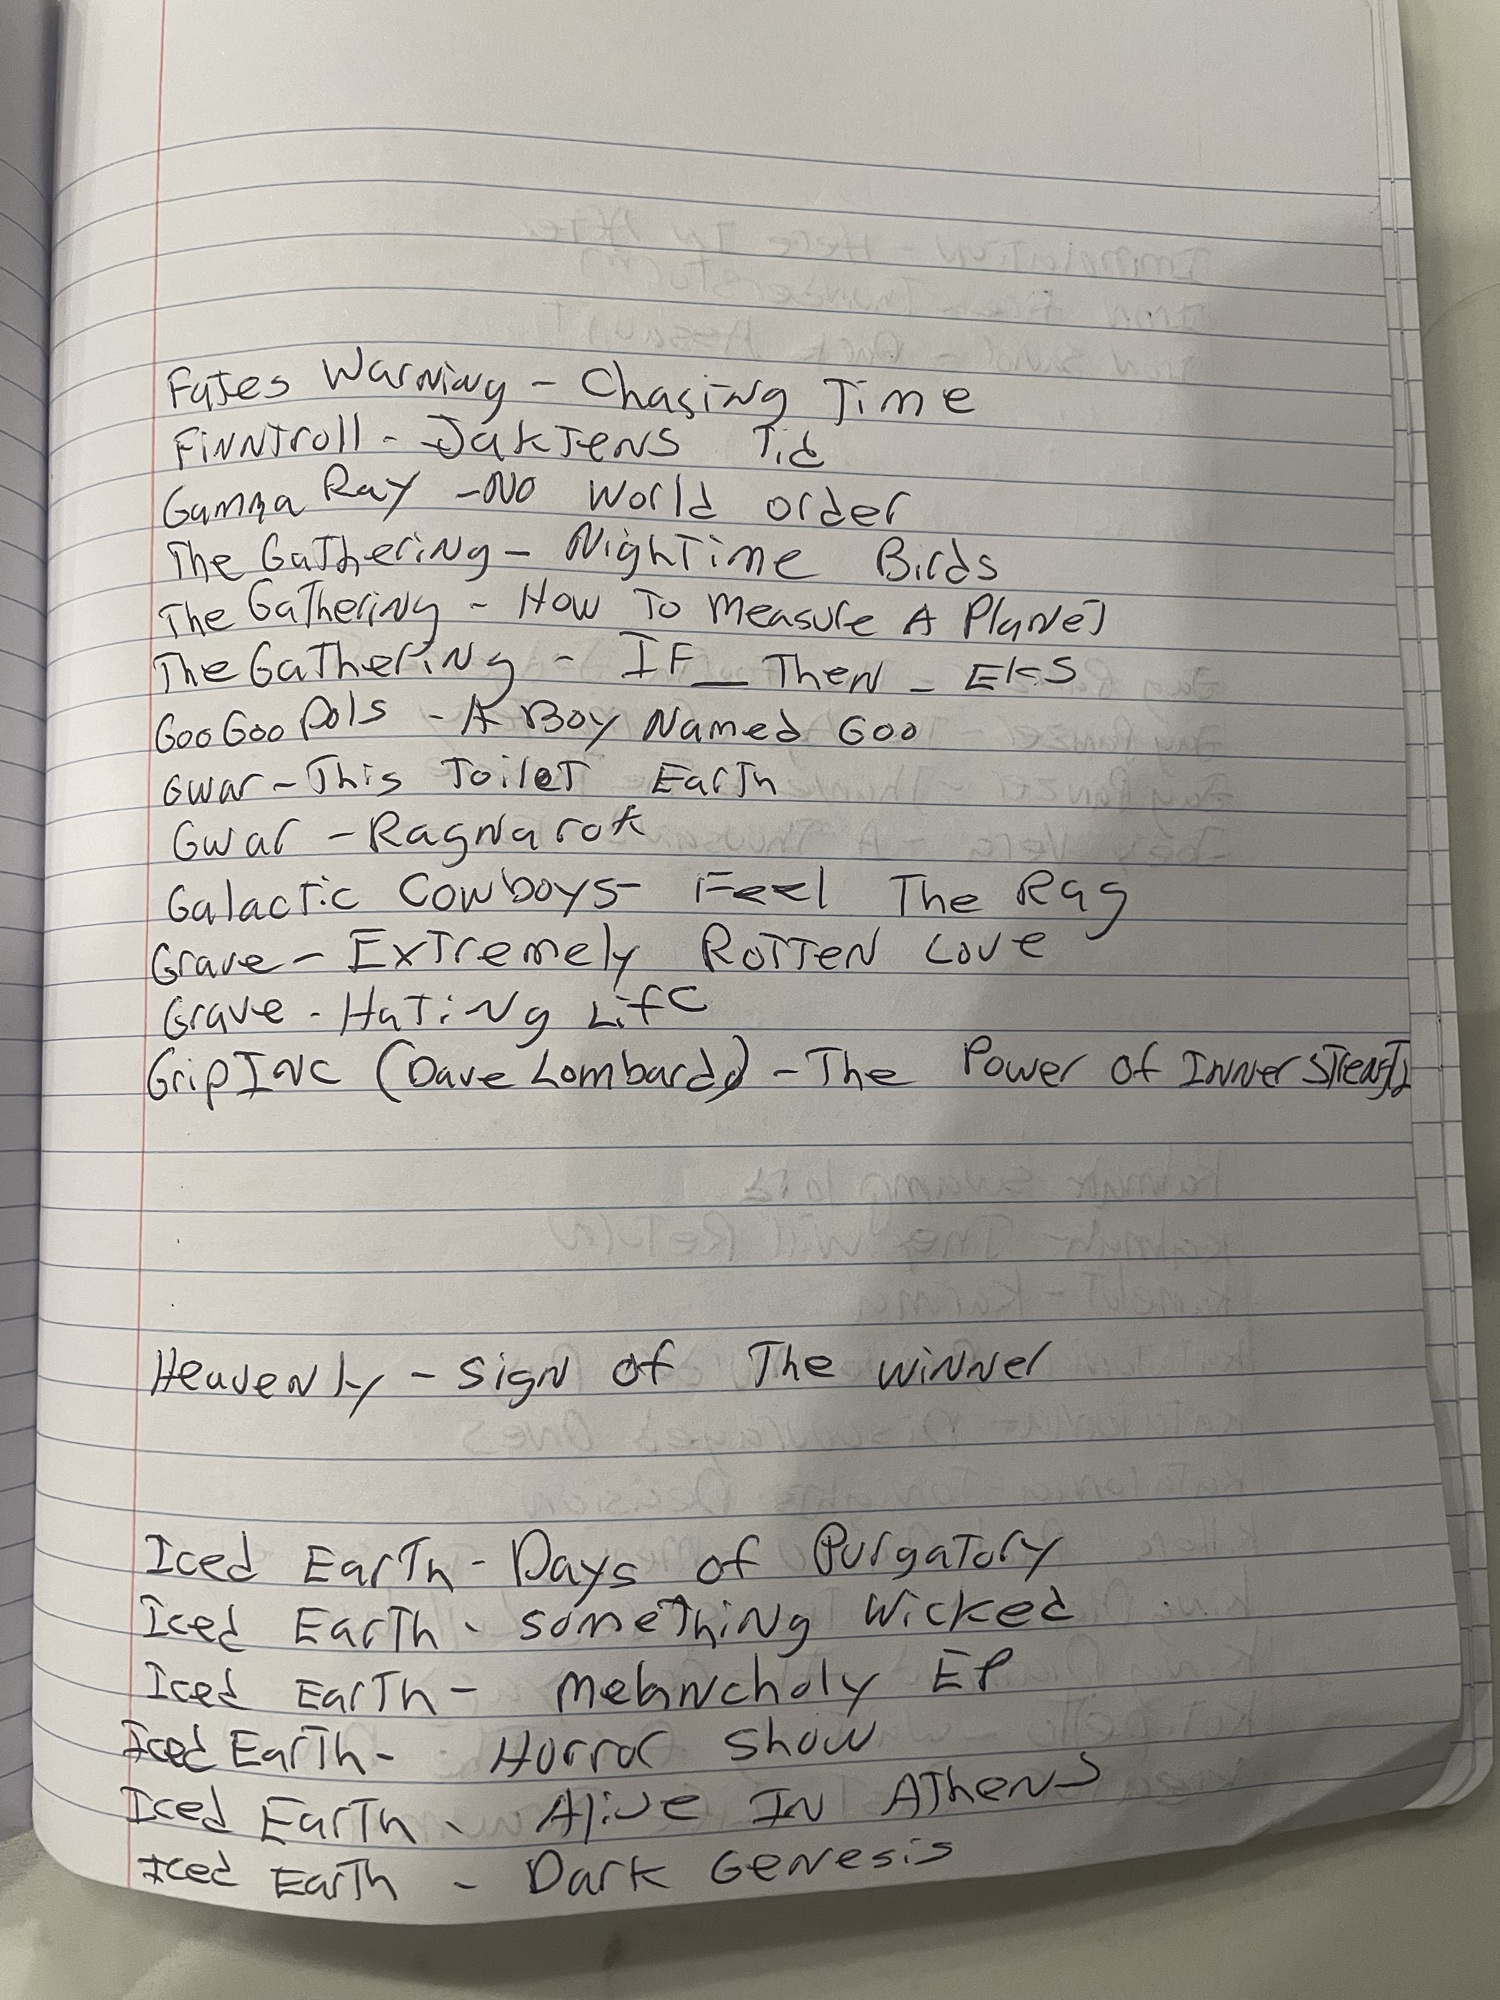 Fates Warning - Chasing Time
Finntroll - Jaktens Tid
Gamma Ray - No World Order
The Gathering - NighTime Birds
The Gathering - How To Measure A Planet
The Gathering - IF_Then_Else
Goo Goo Dols - A Boy Named Goo
Gwar - This Toilet Earth
Gwar - Ragnarok
Galactic Cowboys - Feel The Rag
Grave - Extremely Rotten Love
Grave - Hating Life
Grip INC (Dave Lombardo) - The Power of Inner Strength
Heavenly - Sign of The Winner
Iced Earth - Days of Purgatory
Iced Earth - Something Wicked
Iced Earth - Melancholy EP
Iced Earth - Horror Show
Iced Earth - Alive In Athens
Iced Earth - Dark Genesis